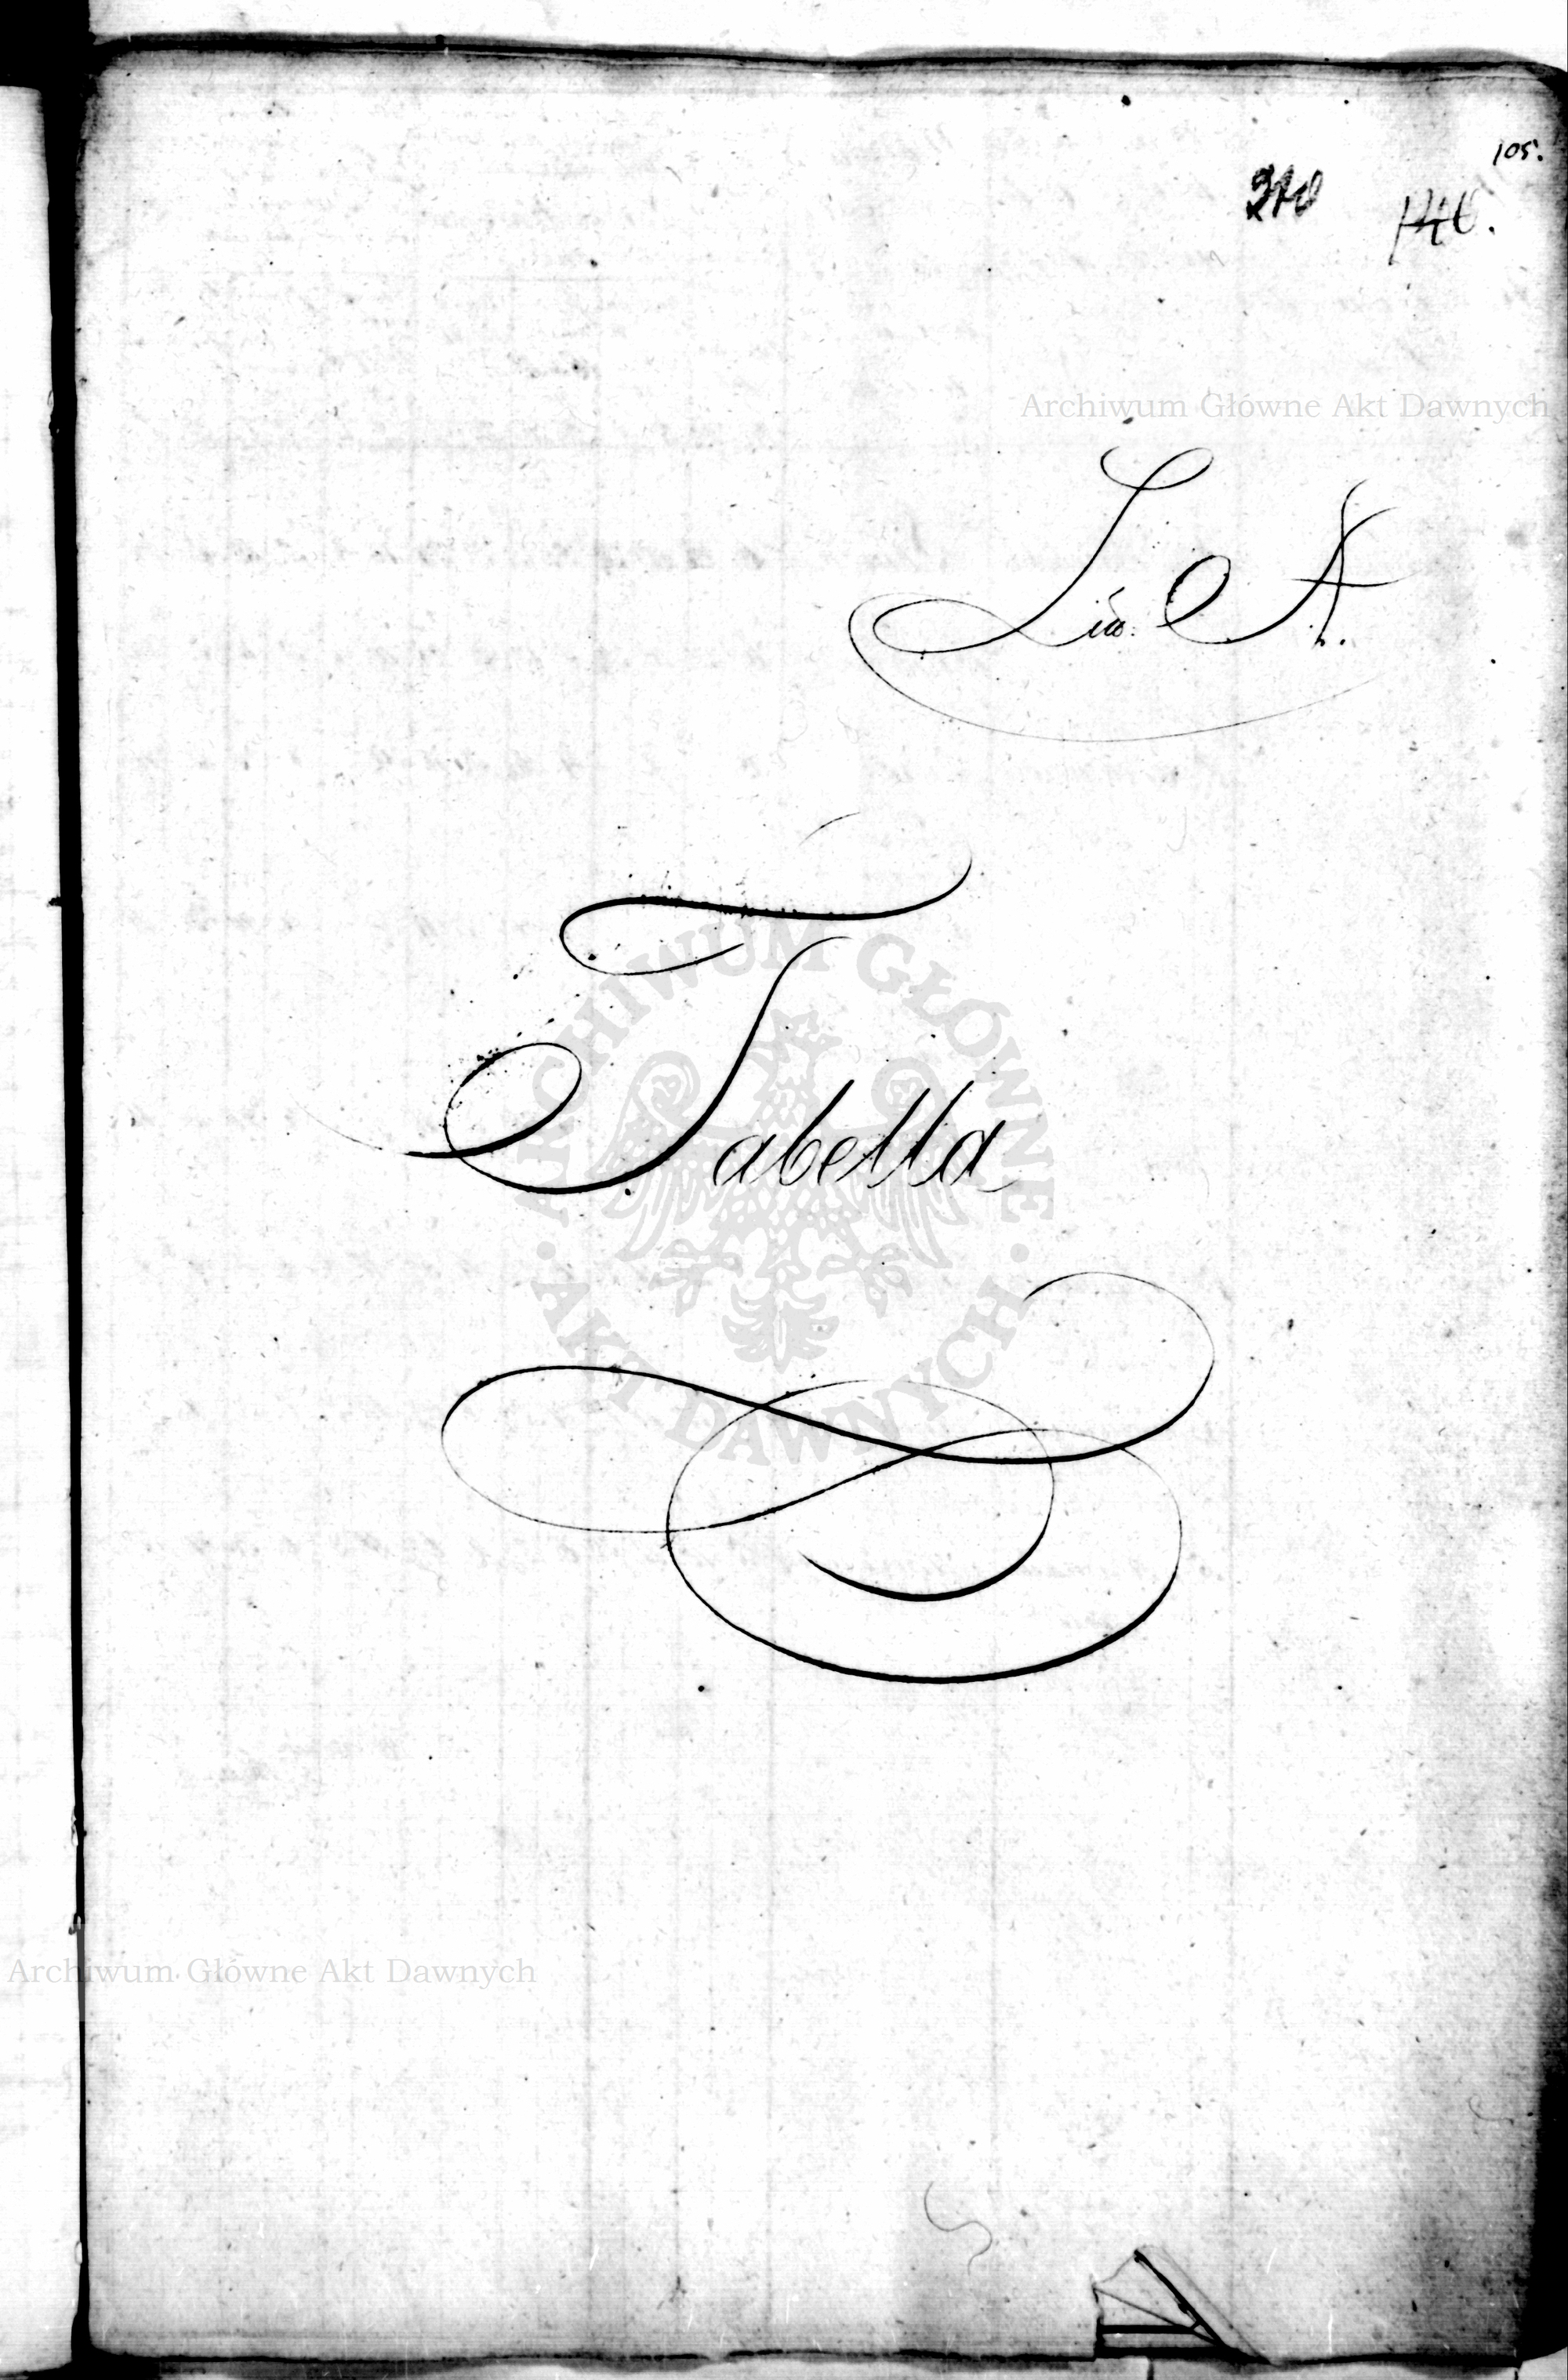 105.
210 146.
Archiwum Główne Akt Dawnych
Lit: A.
Tabella
ARCHIWUM GŁÓWNE
AKT DAWNYCH
Archiwum Główne Akt Dawnych